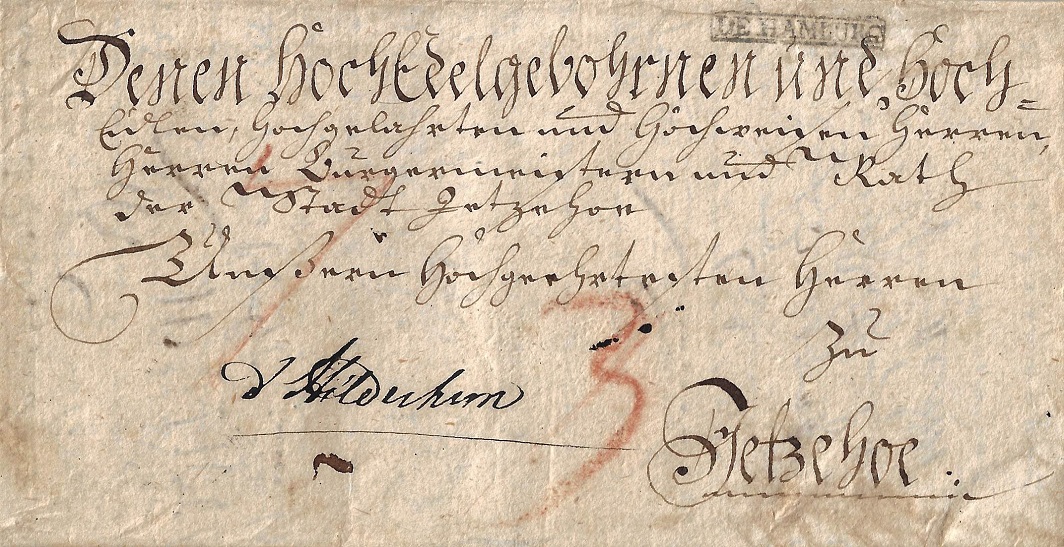 DE HAMBURG
Denen HochEdelgebohrnen und Hoch=
Edlen, Hochgelahrten und Hochweisen Herren,
Herren Burgermeistern und Rath
der Stadt Jetzehoe
Unßern Hochgeehrtesten Herren
zu
d'Hildesheim
3
Jetzehoe.